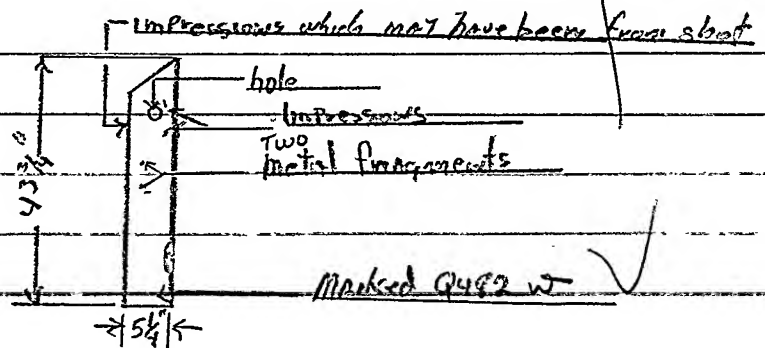 Impressions which may have been from shot
hole
Impressions
Two
metal fragments
43 3/4"
Marked Q482 W
5 1/4"